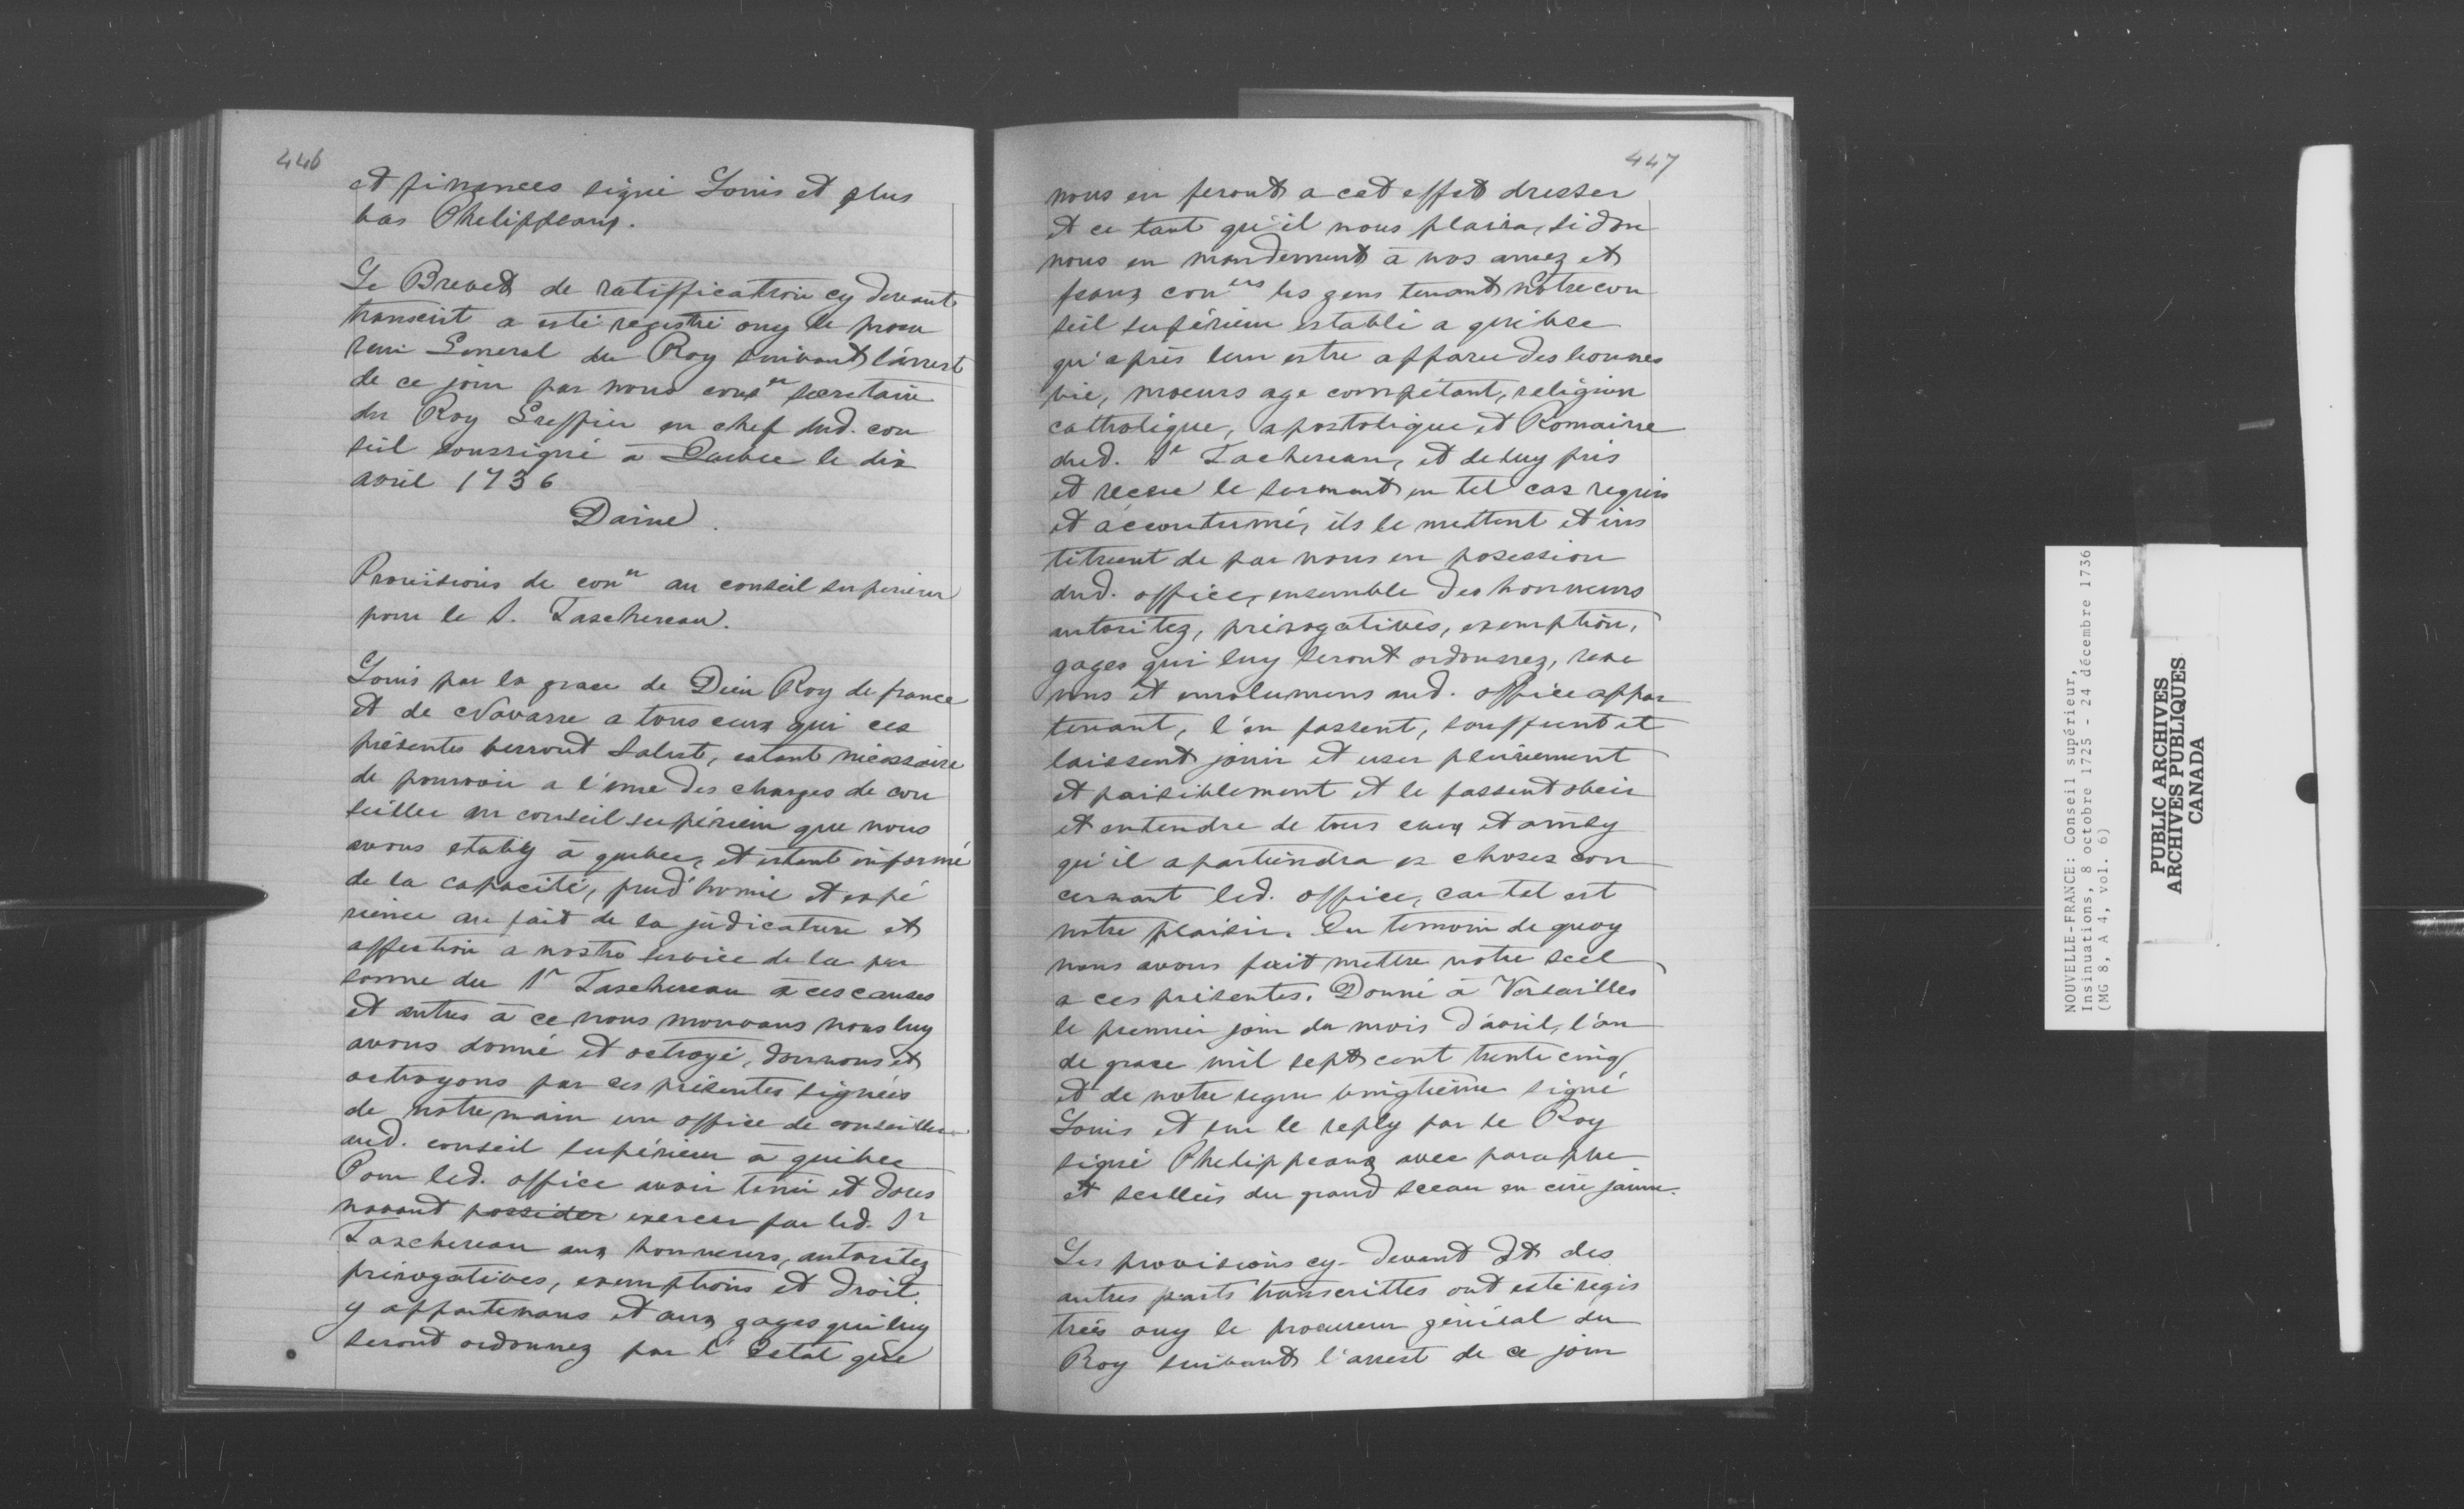 446
et finances signé Louis et plus
bas Phelippeaux.
Le Brevet de ratiffication cy devant
transcrit a esté registré ouy le procu
reur General du Roy suivant l'arrest
de ce jour par nous cons^er secretaire
du Roy Greffier en chef dud. con
seil soussigné à Quebec le dix
avril 1736
Daine.
Provisions de con^er au conseil superieur
pour le S. Taschereau.
Louis par la grace de Dieu Roy de france
et de Navarre a tous ceux qui ces
présentes verront Salut, estant nécessaire
de pourvoir a l'une des charges de con
seiller au conseil supérieur que nous
avons etably à quebec, et estant informé
de la capacité, prud'homie et expé
rience au fait de la judicature et
affection a nostre service de la per
sonne du S^r Taschereau à ces causes
et autres à ce nous mouvans nous luy
avons donné et octroyé, donnons et
octroyons par ces présentes signées
de notre main un office de conseiller
aud. conseil supérieur à quebec
Pour led. office avoir tenir et dores
navant posseder exercer par led. S^r
Taschereau aux honneurs, autoritez
prérogatives, exemptions et droit
y appartenans et aux gages qui luy
seront ordonnez par l'Estat que
447
nous en feront a cet effet dresser
et ce tant qu'il nous plaira, si don
nous en mandement à nos amez et
feaux con^ers les gens tenant notre con
seil supérieur establi a quebec
qu'après leur estre apparu des bonnes
vie, moeurs age compétant, religion
catholique, apostolique et Romaine
dud. S^r Tachereau, et de luy pris
et receu le serment en tel cas requis
et accoutumé, ils le mettent et ins
tituent de par nous en posession
dud. office, ensemble des honneurs
autoritez, prérogatives, exemption,
gages qui luy seront ordonnez, reve
nus et emolumens aud. office appar
tenant, l'en fassent, souffrent et
laissent jouir et user pleinement
et paisiblement et le fassent obeir
et entendre de tous ceux et ainsy
qu'il apartiendra es choses con
cernant led. office, car tel est
notre plaisir. En temoin de quoy
nous avons fait mettre notre scel
a ces présentes. Donné à Versailles
le premier jour du mois d'avril, l'an
de grace mil sept cent trente cinq
et de notre regne vingtième signé
Louis et sur le reply par le Roy
signé Phelippeaux avec paraphe
et scellées du grand sceau en cire jaune.
Les provisions cy-devant et des
autres parts transcrittes ont esté regis
trées ouy le procureur général du
Roy suivant l'arrest de ce jour
NOUVELLE-FRANCE: Conseil supérieur,
Insinuations, 8 octobre 1725 - 24 décembre 1736
(MG 8, A 4, vol. 6)
PUBLIC ARCHIVES
ARCHIVES PUBLIQUES
CANADA